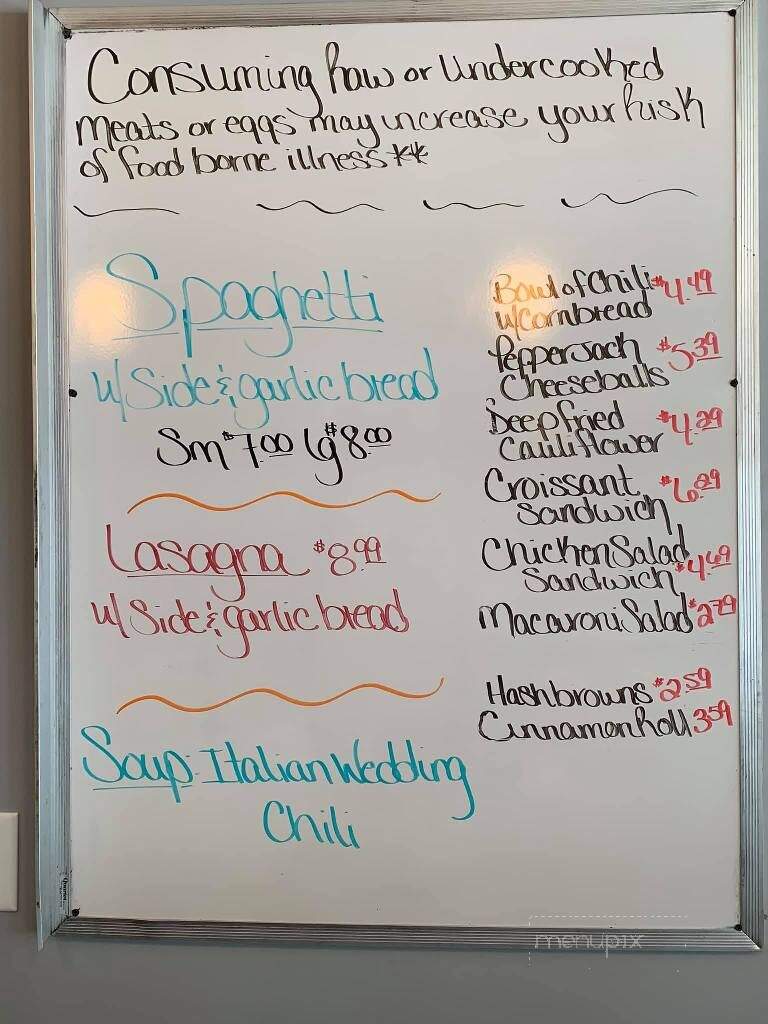 Consuming Raw or Undercooked
Meats or eggs may increase your Risk
of food borne illness**
Spaghetti
w/ Side & garlic bread
Sm $7.00 lg $8.00
Lasagna $8.99
w/ Side & garlic bread
Soup: Italian Wedding
Chili
Bowl of Chili $4.49
w/ Cornbread
Pepper Jack $5.39
Cheeseballs
Deep Fried $4.29
Cauliflower
Croissant $6.29
Sandwich
Chicken Salad
Sandwich $4.69
Macaroni Salad $2.79
Hashbrowns $2.59
Cinnamon Roll 3.59
menupix